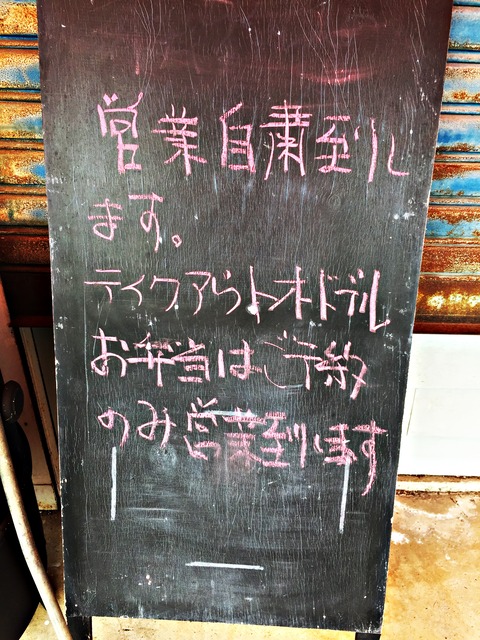 営業自粛到し
ます。
テイクアウトオードブル
お弁当はご予約
のみ営業到します